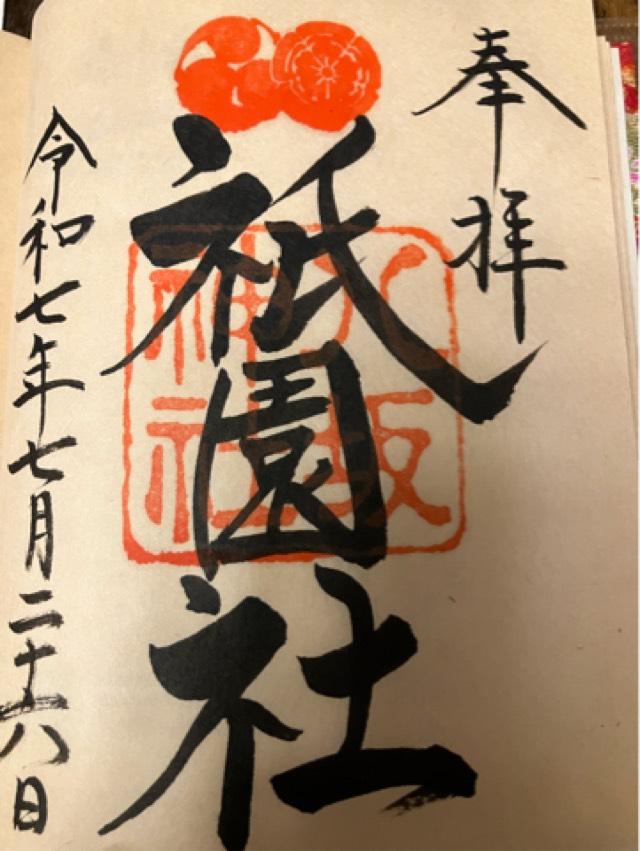 奉拝
祇園社
八坂神社
令和七年七月二十八日